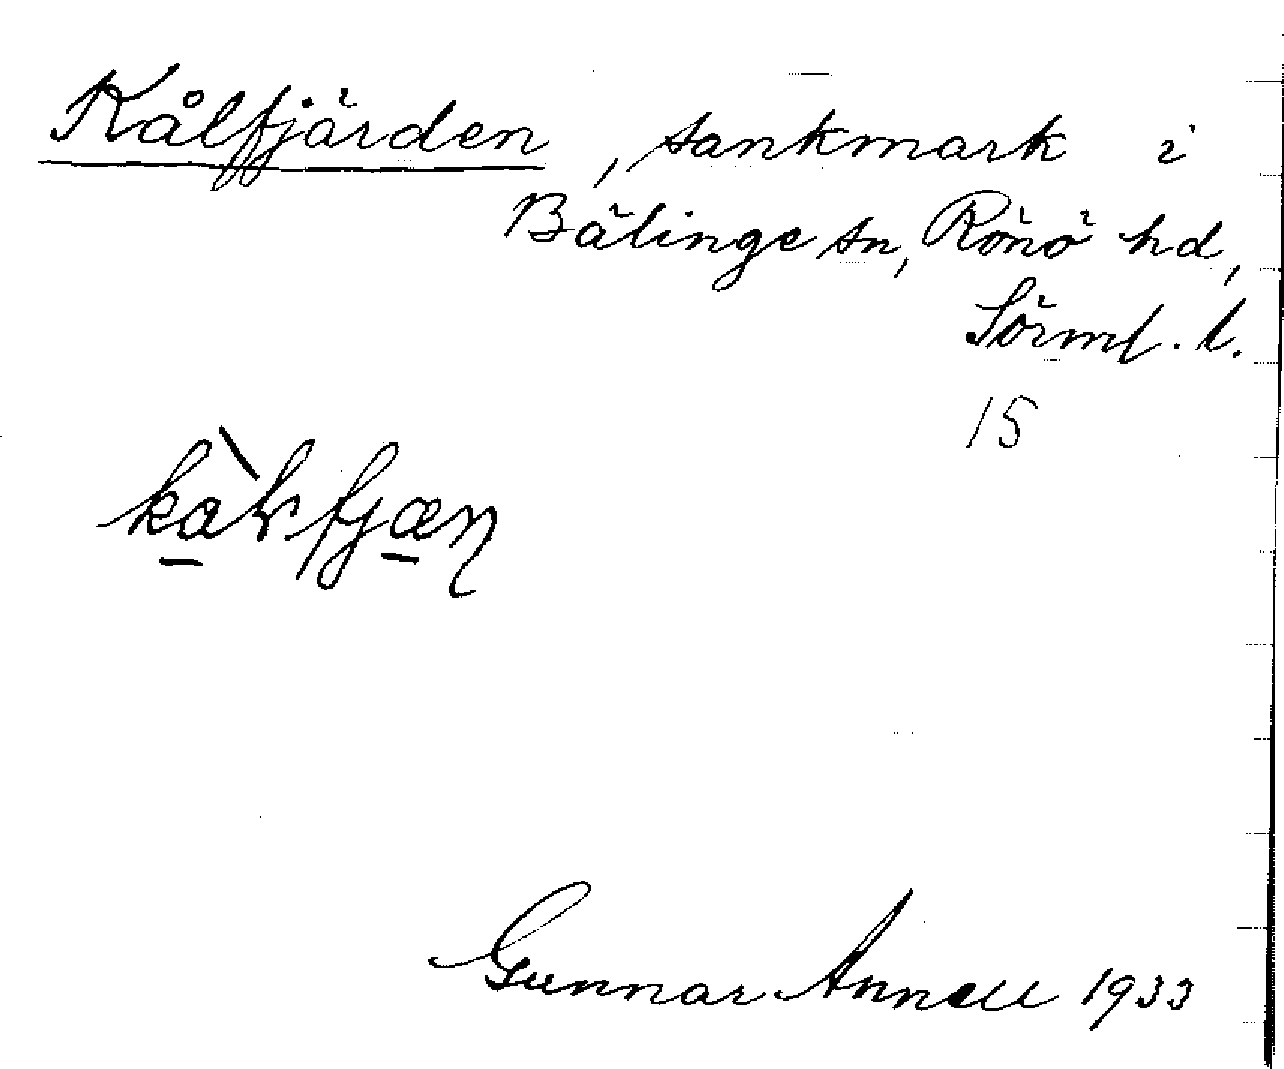 Kålfjärden, sankmark i
Bälinge sn, Rönö hd,
Sörml. l.
15
Gunnar Annell 1933